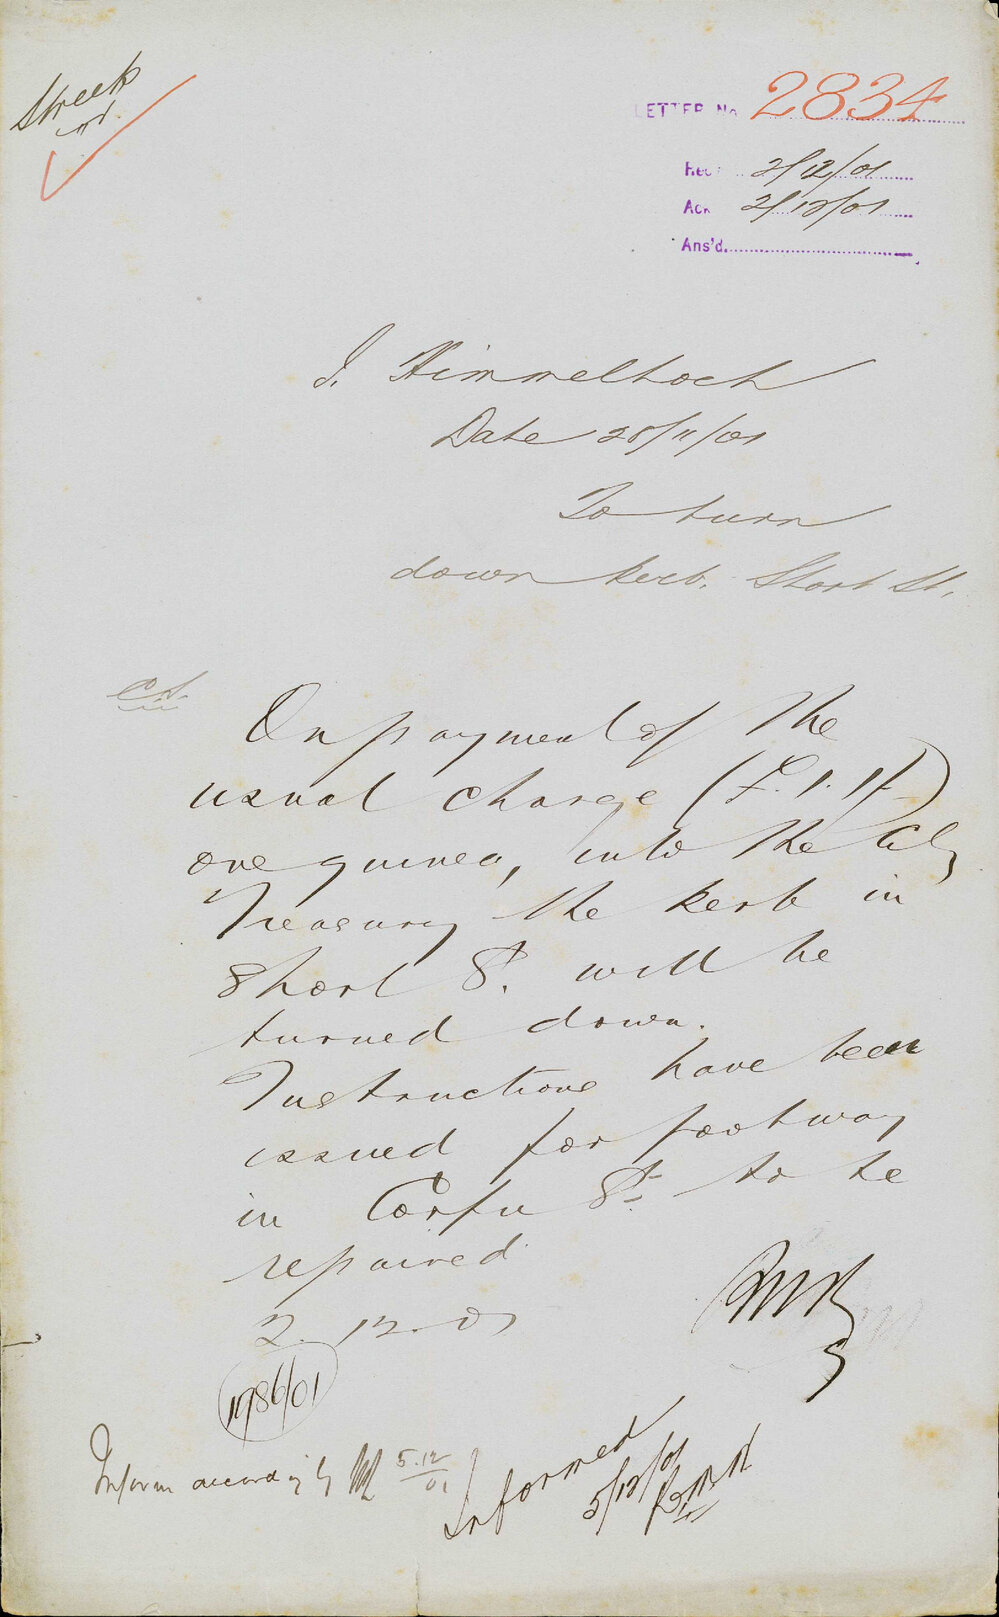 Streets
LETTER No 2834
Rec 2/12/01
Ack 2/12/01
Ans'd.
I. Himmelhoch
Date 28/11/01
To turn
down kerb. Short St.
C.S.
On payment of the
usual charge (£.1.1/-)
one guinea, into the City
Treasury the kerb in
Short St. will be
turned down.
Instructions have been
issued for footway
in Corfu St to be
repaired
2.12.01
1986/01
Inform accordingly 5.12/01
Informed
5/12/01